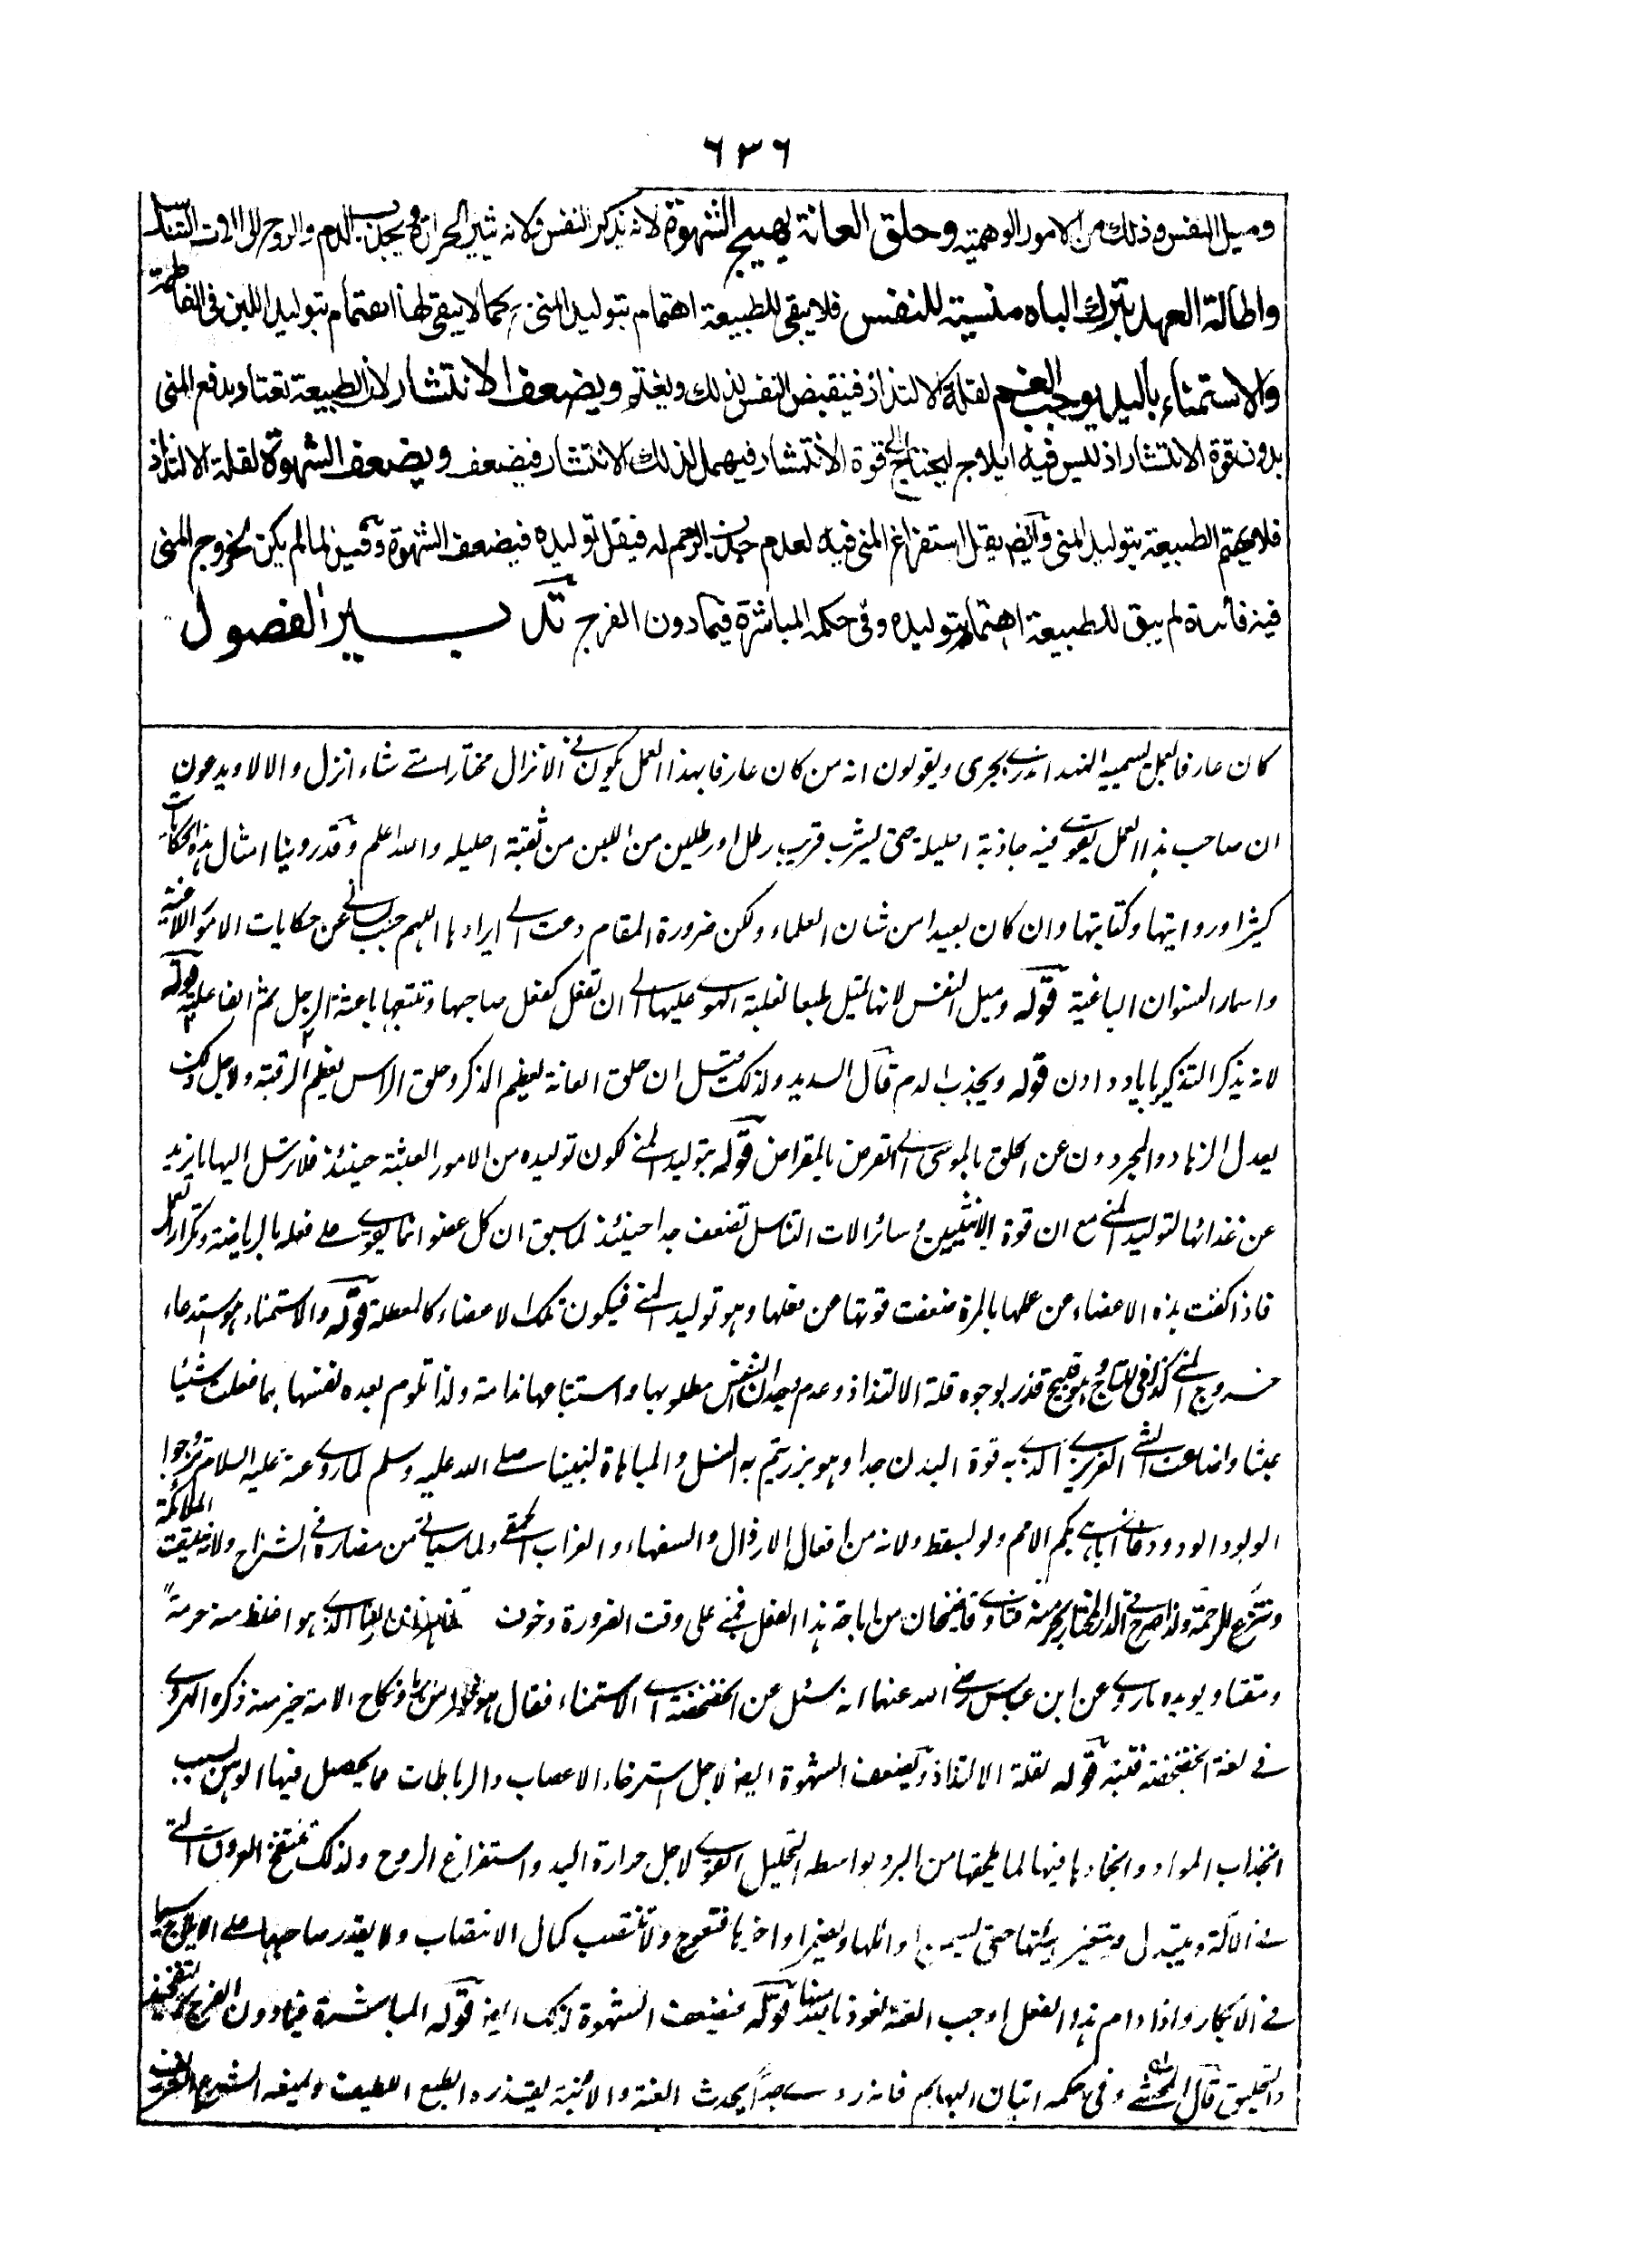 ٦٣٦
وميل النفس وذلك من الامور الوهمية وحلق العانة يهيج الشهوة لانه يذكر النفس ولانه يثير الحرارة ويجذب الدم والروح الى الات التناسل
واطالة العهد بترك الباه منسية للنفس فلا يبقى للطبيعة اهتمام بتوليد المنى كما لا يبقى لها اهتمام بتوليد اللبن فى الفاطمة
والاستمناء باليد يوجب الغم لقلة الالتذاذ فينقبض النفس لذلك ويغتم ويضعف الانتشار لان الطبيعة تعتاد بدفع المنى
بدون قوة الانتشار اذ ليس فيه ايلاج ليحتاج الى قوة الانتشار فيهمل لذلك الانتشار فيضعف ويضعف الشهوة لقلة الالتذاذ
فلا يهتم الطبيعة بتوليد المنى وايضا يقل استفراغ المنى فيه لعدم جذب الرحم له فيقل توليده فيضعف الشهوة وقيل لما لم يكن لخروج المنى
فيه فائدة لم يبق للطبيعة اهتمام بتوليده وفى حكمه المباشرة فيما دون الفرج تدبير الفصول
كان عارفا لعمل يسميه الهند بجرى ويقولون انه من كان عارفا بهذا العمل يكون فى الانزال مختارا متى شاء انزل والا لا ويدعون
ان صاحب هذا العمل يقوى فيه جاذبة احليله حتى يشرب قريب رطل او رطلين من اللبن من ثقبة احليله والله اعلم وقد روينا امثال هذه الحكايات
كثيرا وروايتها وكتابتها وان كان بعيدا من شان العلماء ولكن ضرورة المقام دعت الى ايرادها اللهم جنب لسانى عن حكايات الامور
قوله وميل النفس لانها تميل طبعا لغلبة الهوى عليها الى ان تفعل كفعل صاحبها
لانه يذكر التذكير ياد دادن قوله ويجذب الدم قال السديد ولذلك قيل ان حلق العانة يعظم الذكر وحلق الراس يعظم الرقبة ولاجل ذلك
يعدل الزهاد والمجردون عن الحلق بالموسى الى القرض بالمقراض قوله بتوليد المنى لكون توليده من الامور العبثة حينئذ فلا ترسل اليها ما يزيد
عن غذائها لتوليد المنى مع ان قوة الانثيين وسائر الات التناسل تضعف جدا حينئذ لما سبق ان كل عضو انما يقوى على فعله بالرياضة وتكرار العمل
فاذا كفت هذه الاعضاء عن عملها بالمرة ضعفت قوتها عن فعلها وهو توليد المنى فيكون تلك الاعضاء كالمعطلة قوله والاستمناء هو استدعاء
خروج المنى كذا فى التاج وهو قبيح قذر لوجوه قلة الالتذاذ وعدم وجدان النفس مطلوبها واستتباعها ندامة ولذا تلوم بعده نفسها بما فعلت شيئا
عبثا واضاعت الشى العزيز الذى به قوة البدن جدا وهو بزر يتم به النسل والمباهاة لنبينا صلى الله عليه وسلم لما روى عنه عليه السلام تزوجوا
الولود الودود فانى اباهى بكم الامم ولو بسقط ولانه من افعال الارذال والسفهاء ولما سياتى من مضاره فى الشرح
ولذا صرح فى الدر المختار فتاوى قاضيخان من اباحة هذا الفعل فمبنى على وقت الضرورة وخوف الذى هو اغلظ منه حرمة
ومقتا ويويده ما روى عن ابن عباس رضى الله عنهما انه سئل عن الخضخضة اى الاستمناء فقال هو خير من الزنا ونكاح الامة خير منه ذكره الهروى
فى لغة الخضخضة فتنبه قوله لقلة الالتذاذ ويضعف الشهوة ايضا لاجل استرخاء الاعصاب والرباطات مما يحصل فيها الوهن بسبب
انجذاب المواد وانجمادها فيها لما يلحقها من البرد بواسطة التحليل القوى لاجل حرارة اليد واستفراغ الروح ولذلك تنتفخ العروق التى
فى الالة ويتبدل ويتغير هيئتها حتى يسمن اوائلها ويضمر اواخرها فتعوج ولا تنتصب كمال الانتصاب ولا يقدر صاحبها على الايلاج سيما
فى الابكار واذا دام هذا الفعل اوجب العنة نعوذ بالله منها قوله فيضعف الشهوة لذلك ايضا قوله المباشرة فيما دون الفرج كالتفخيذ
والتحليق قال المحشى وفى حكمه اتيان البهايم فانه ردى جدا يحدث العنة والابنة يقذره الطبع اللطيف ويمنعه الشرع الشريف